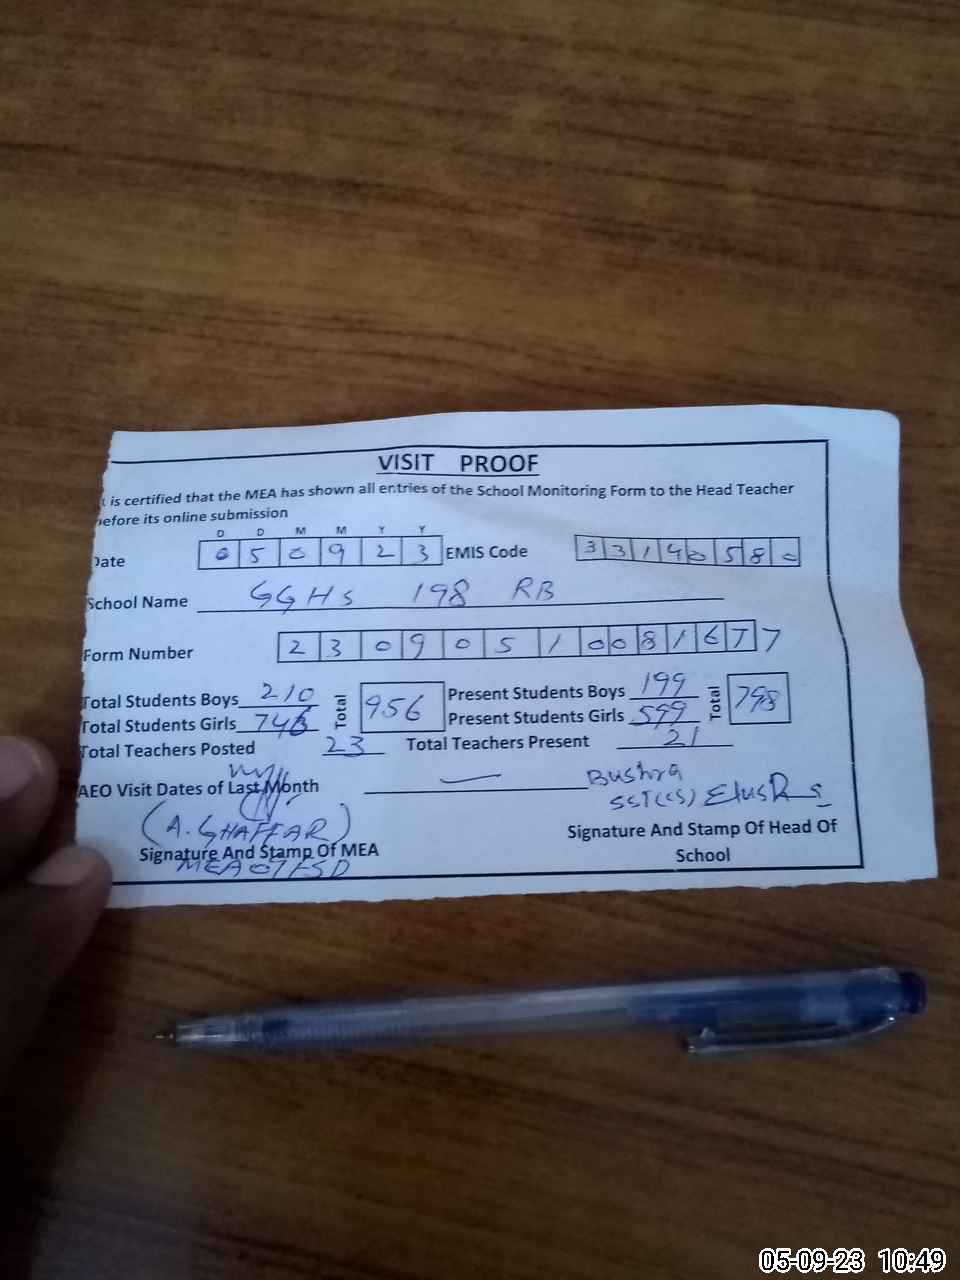 VISIT PROOF
t is certified that the MEA has shown all entries of the School Monitoring Form to the Head Teacher
before its online submission
D D M M Y Y
Date 050923 EMIS Code 33140580
School Name GGHS 198 RB
Form Number 23090510081677
Total Students Boys 210 Total 956 Present Students Boys 199 Total 798
Total Students Girls 746 Present Students Girls 599
Total Teachers Posted 23 Total Teachers Present 21
AEO Visit Dates of Last Month — Bushra
SST(CS)
(A. GHAFFAR)
Signature And Stamp Of MEA Signature And Stamp Of Head Of
School
MEA 07 FSD
05-09-23 10:49